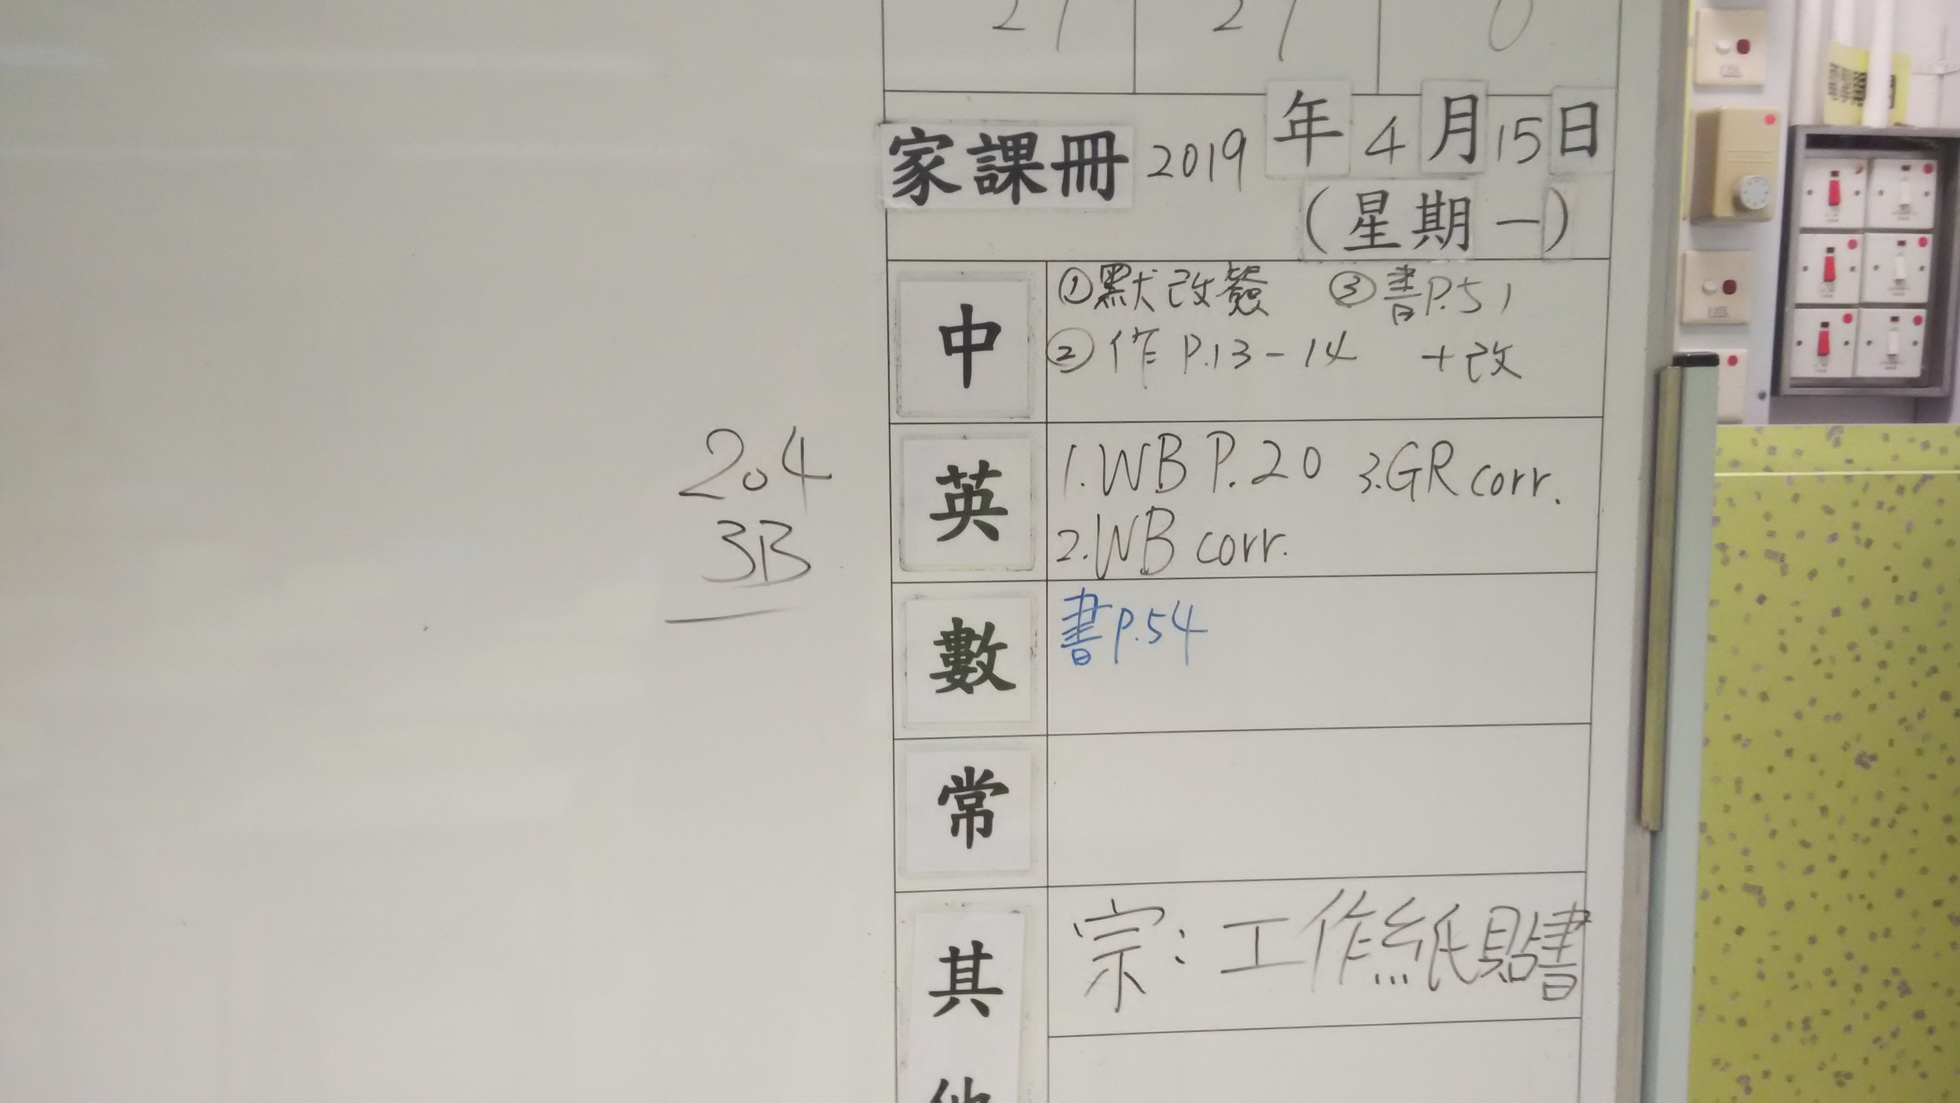 27 27 0
家課冊 2019 年 4 月 15 日
(星期一)
中 ①默改簽 ③書P.51
②作 P.13-14 +改
204
3B
英 1.WB P.20 3.GR corr.
2.WB corr.
數 書P.54
常
其他 宗:工作紙貼書